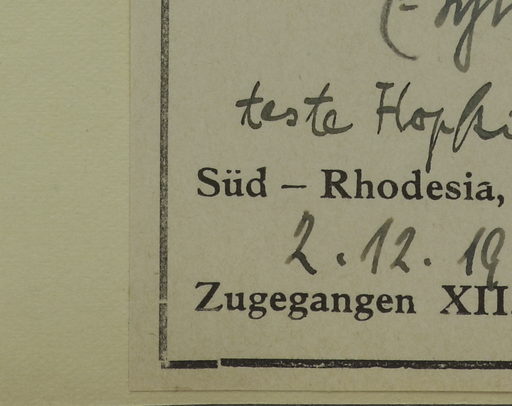 teste Hopki
Süd – Rhodesia,
2. 12. 19
Zugegangen XII.